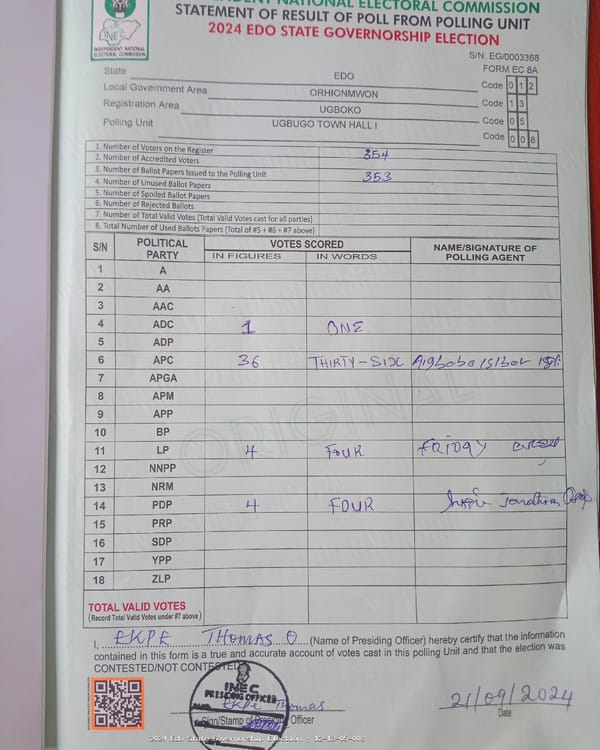 INDEPENDENT NATIONAL ELECTORAL COMMISSION
STATEMENT OF RESULT OF POLL FROM POLLING UNIT
2024 EDO STATE GOVERNORSHIP ELECTION
INEC
INDEPENDENT NATIONAL
ELECTORAL COMMISSION
S/N: EG/0003368
FORM EC 8A
State EDO Code 0 1 2
Local Government Area ORHIONMWON Code 1 3
Registration Area UGBOKO Code 0 5
Polling Unit UGBUGO TOWN HALL I Code 0 0 8
1. Number of Voters on the Register 354
2. Number of Accredited Voters
3. Number of Ballot Papers Issued to the Polling Unit 353
4. Number of Unused Ballot Papers
5. Number of Spoiled Ballot Papers
6. Number of Rejected Ballots
7. Number of Total Valid Votes (Total Valid Votes cast for all parties)
8. Total Number of Used Ballots Papers (Total of #5 + #6 + #7 above)
S/N POLITICAL PARTY VOTES SCORED NAME/SIGNATURE OF POLLING AGENT
IN FIGURES IN WORDS
1 A
2 AA
3 AAC
4 ADC 1 ONE
5 ADP
6 APC 36 THIRTY-SIX
7 APGA
8 APM
9 APP
10 BP
11 LP 4 FOUR FRIDAY
12 NNPP
13 NRM
14 PDP 4 FOUR
15 PRP
16 SDP
17 YPP
18 ZLP
ORIGINAL
TOTAL VALID VOTES
(Record Total Valid Votes under #7 above)
I, EKPE THOMAS O (Name of Presiding Officer) hereby certify that the information
contained in this form is a true and accurate account of votes cast in this polling Unit and that the election was
CONTESTED/NOT CONTESTED
INEC
PRESIDING OFFICER
Ekpe Thomas
Sign/Stamp of Presiding Officer
21/09/2024
Date
2024 Edo State Governorship Election